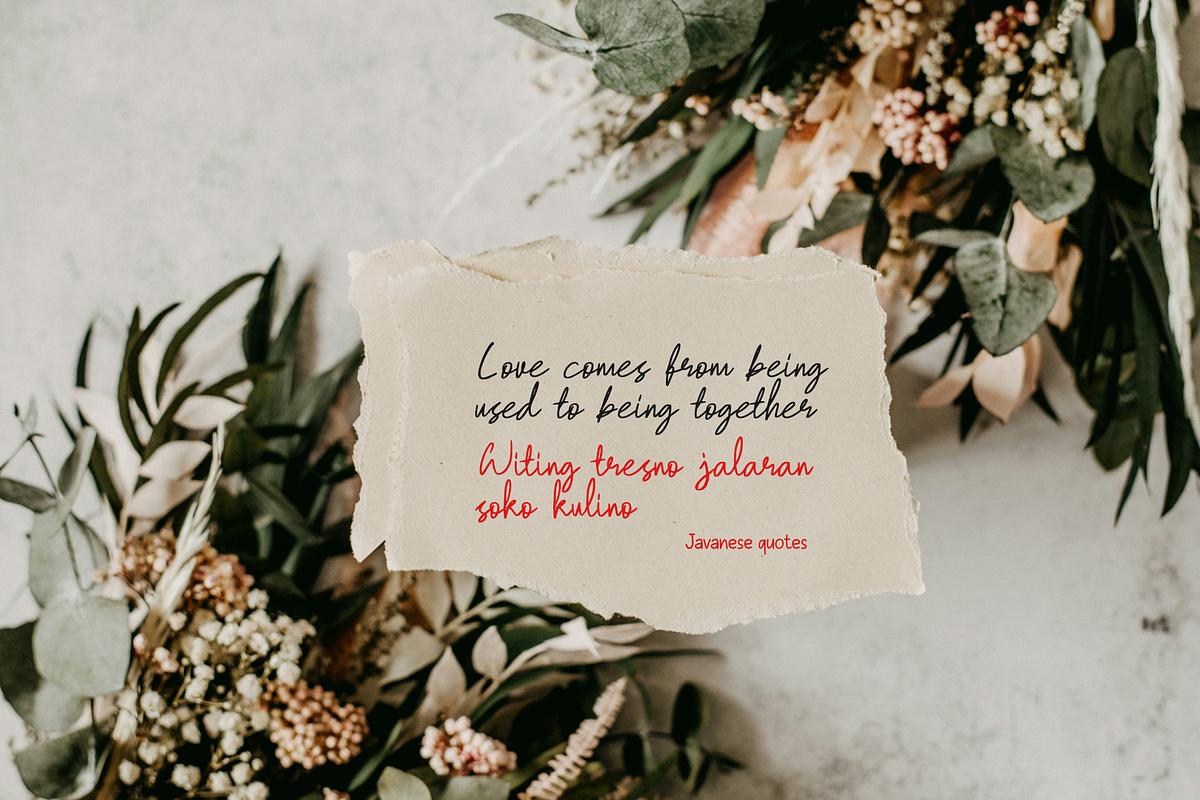 Love comes from being
used to being together
Witing tresno jalaran
soko kulino
Javanese quotes